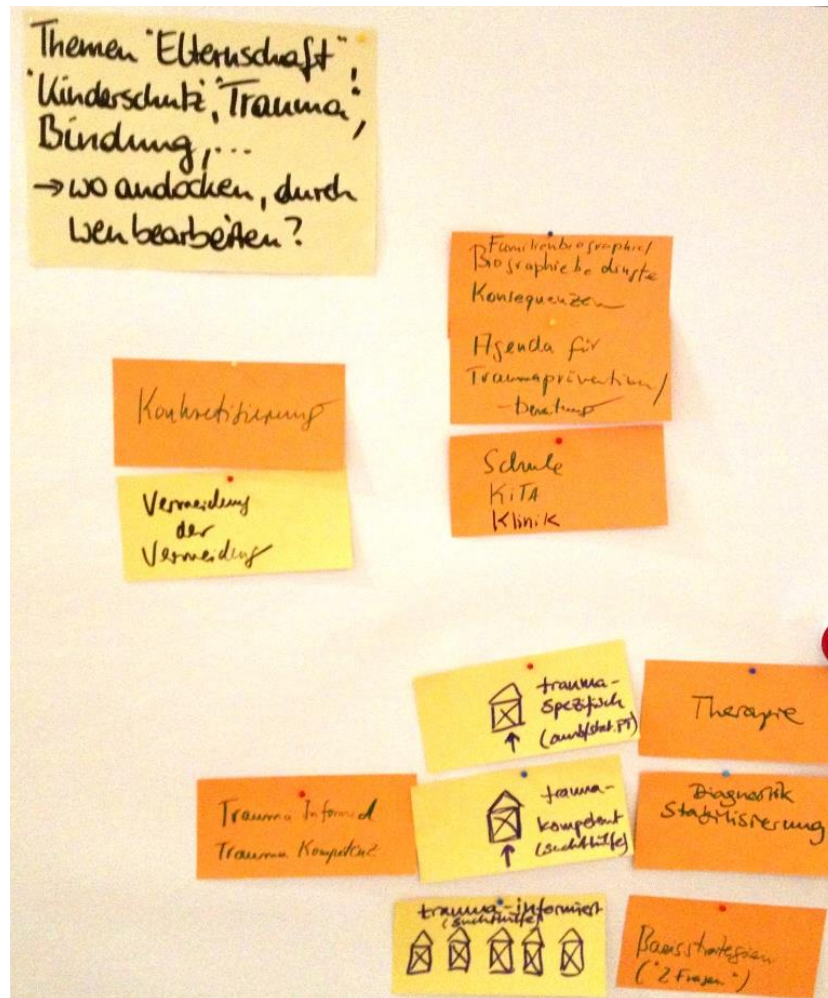 Themen "Elternschaft",
"Kinderschutz", "Trauma",
Bindung, ...
→ wo andocken, durch
wen bearbeiten?
Familienbiographie/
Biographiebedingte
Konsequenzen
Agenda für
Traumaprävention/
-beratung
Schule
KiTA
Klinik
Konkretisierung
Vermeidung
der
Vermeidung
trauma-
spezifisch
(amb/stat. PT)
Therapie
Trauma Informed
Trauma Kompetenz
trauma-
kompetent
(suchthilfe)
Diagnostik
Stabilisierung
trauma-informiert
(suchthilfe)
Basisstrategien
("2 Fragen")